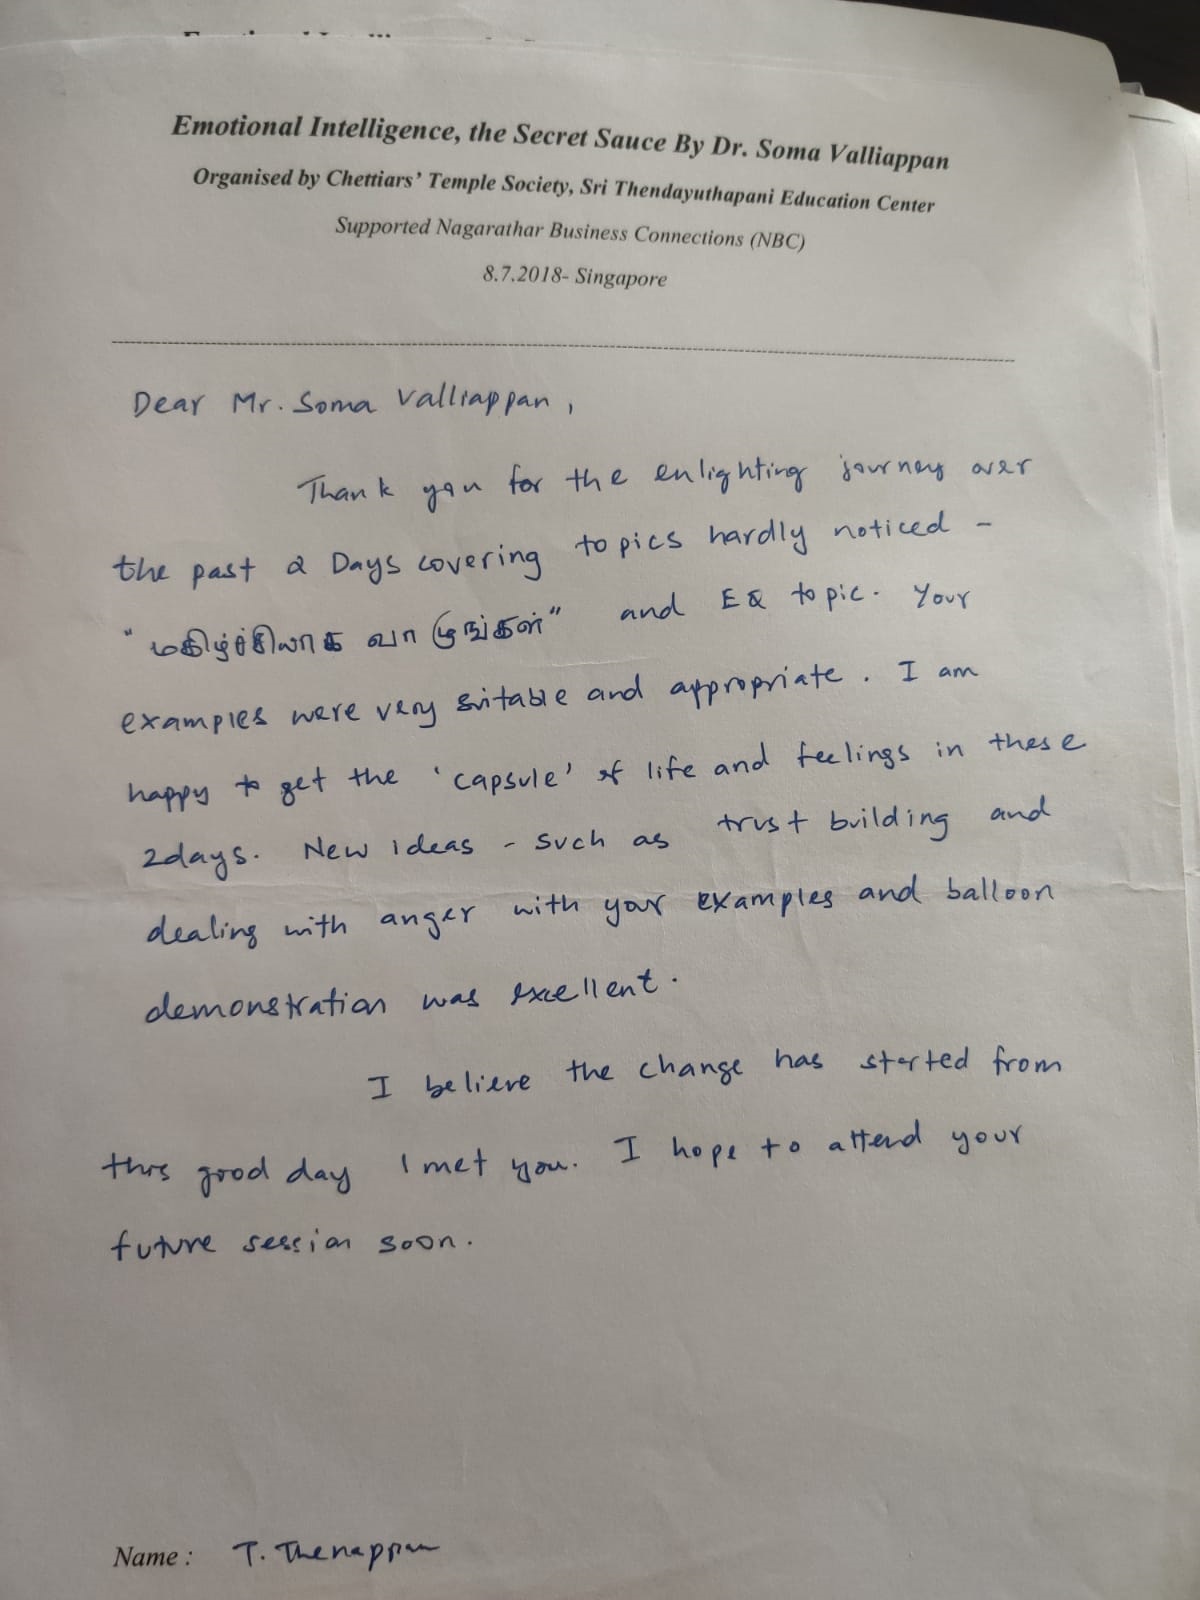 Emotional Intelligence, the Secret Sauce By Dr. Soma Valliappan
Organised by Chettiars' Temple Society, Sri Thendayuthapani Education Center
Supported Nagarathar Business Connections (NBC)
8.7.2018- Singapore
Dear Mr. Soma Valliappan,
Thank you for the enlighting journey over
the past 2 Days covering topics hardly noticed -
"மகிழ்ச்சியாக வாழுங்கள்" and EQ topic. Your
examples were very suitable and appropriate. I am
happy to get the 'capsule' of life and feelings in these
2days. New ideas - such as trust building and
dealing with anger with your examples and balloon
demonstration was excellent.
I believe the change has started from
this good day I met you. I hope to attend your
future session soon.
Name : T. Thenappan